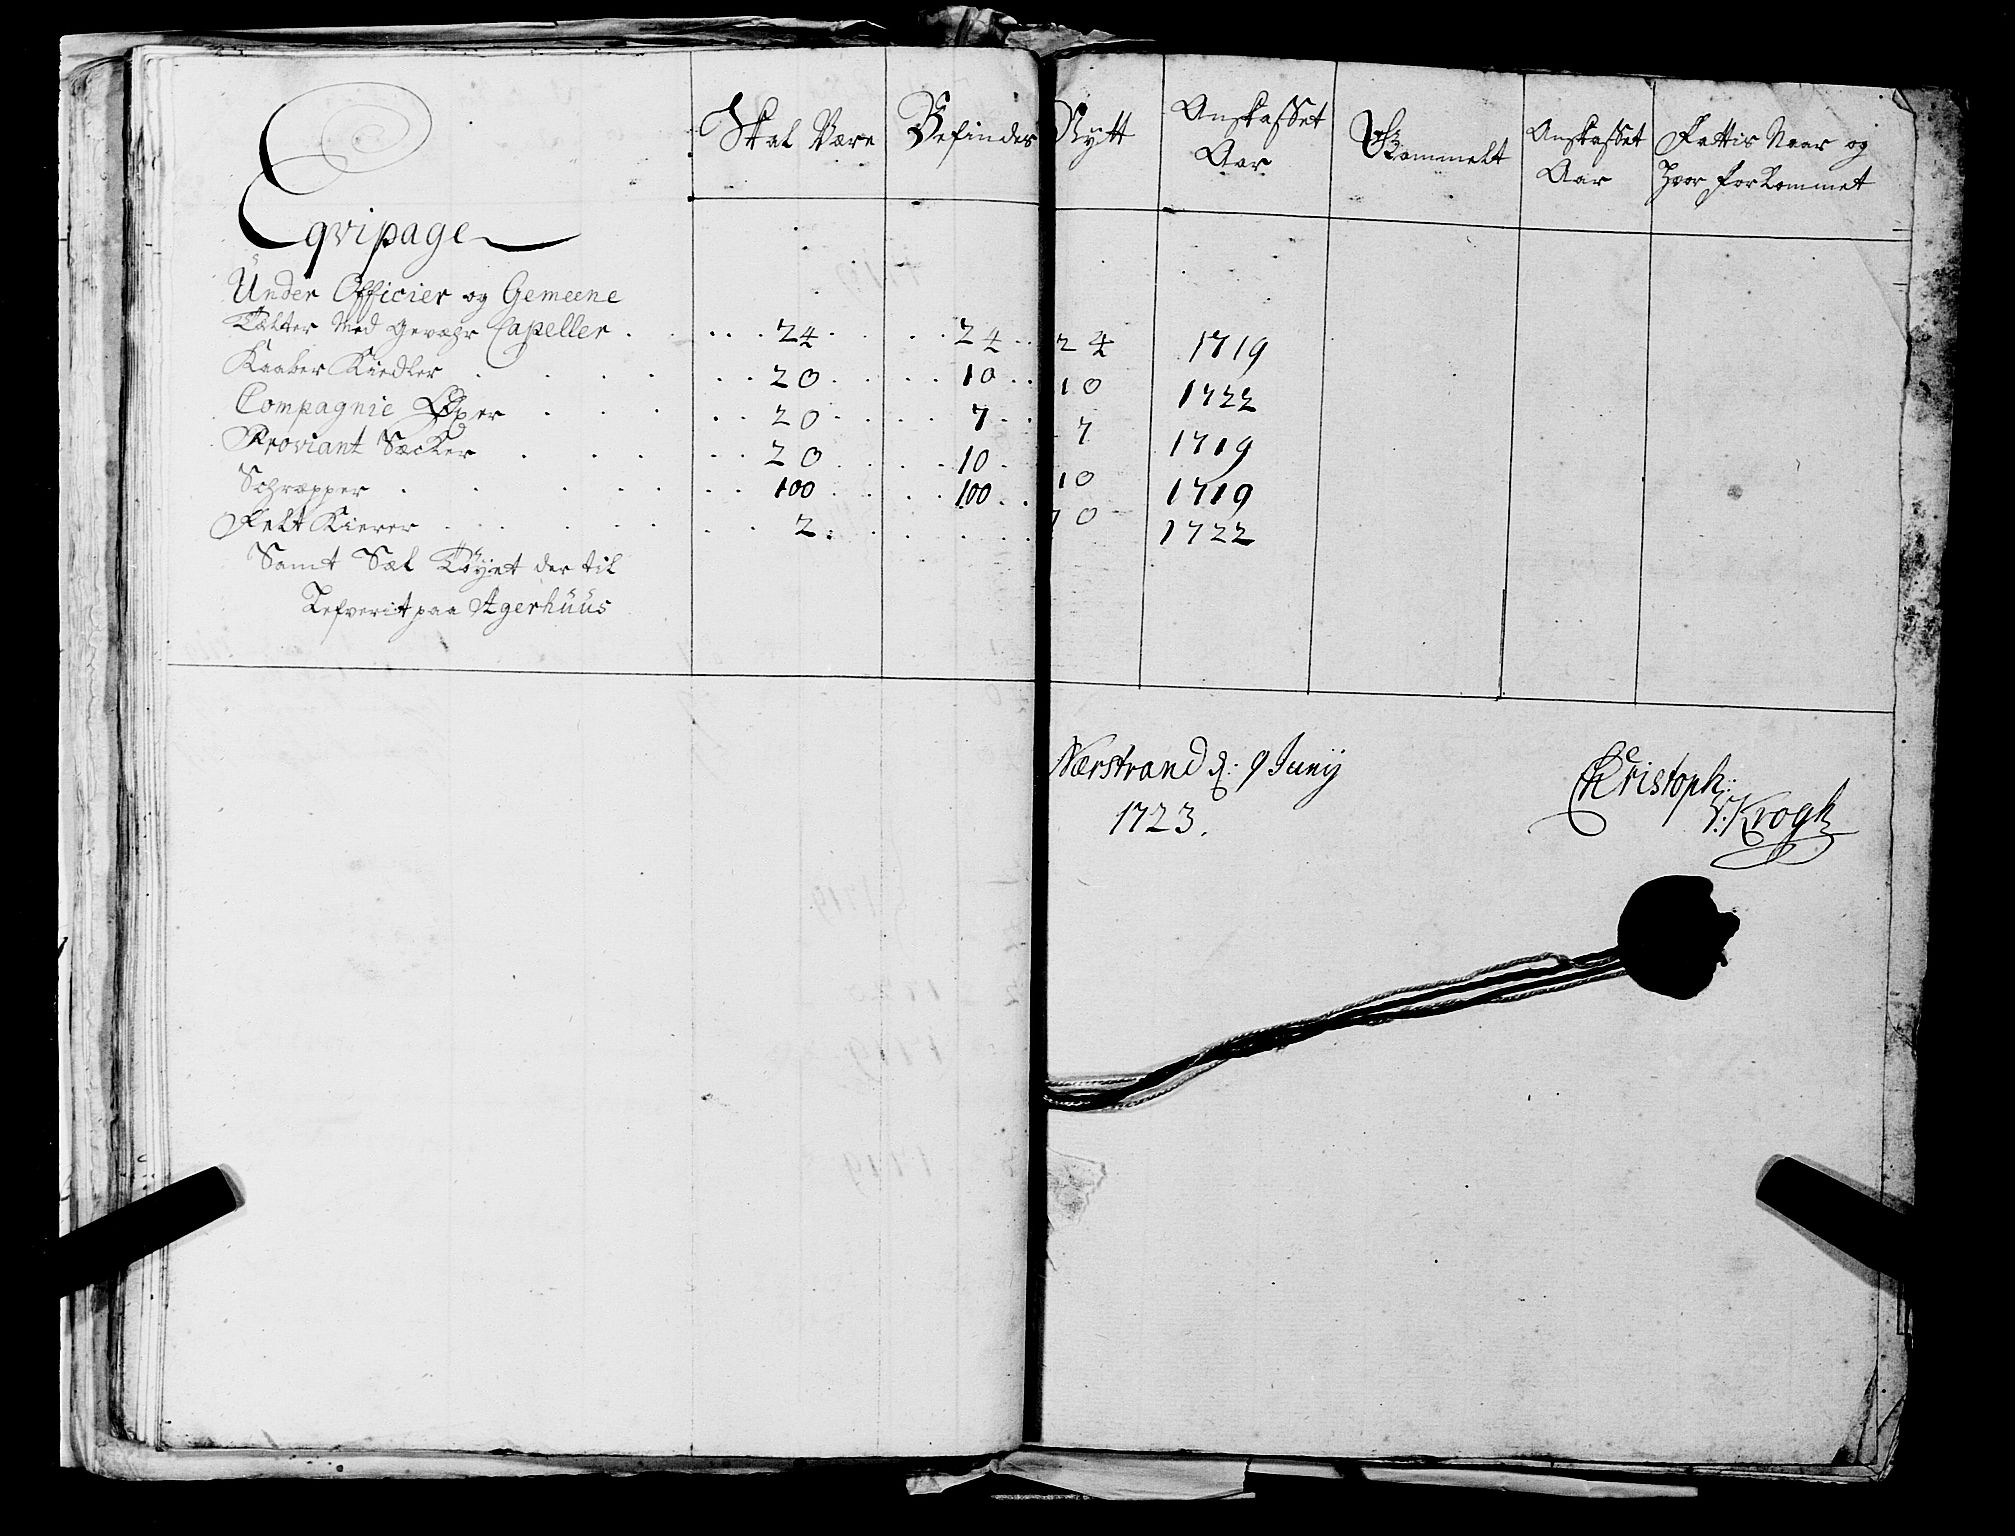 Skal Være Befindes Nÿtt Anskaffet Aar Gammelt Anskaffet Aar Fattis Naar og
Hvor forkommet
Eqvipage
Under Officier og Gemeene
Tælter Med Gevæhr Capeller 24 24 24 1719
Kaaber Kiedler 20 10 10 1722
Compagnie Øxer 20 7 7 1719
Proviant Sæcker 20 10 10 1719
Schrapper 100 100 1722
Felt Kierer 2
Samt Sæl Tøÿet der til
Lefverit paa Agerhuus
Nærstrand d: 9 Junÿ
1723.
Christoph:
V: Krogh